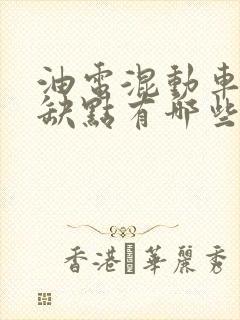 油電混動車
缺點有哪些
香港華麗秀